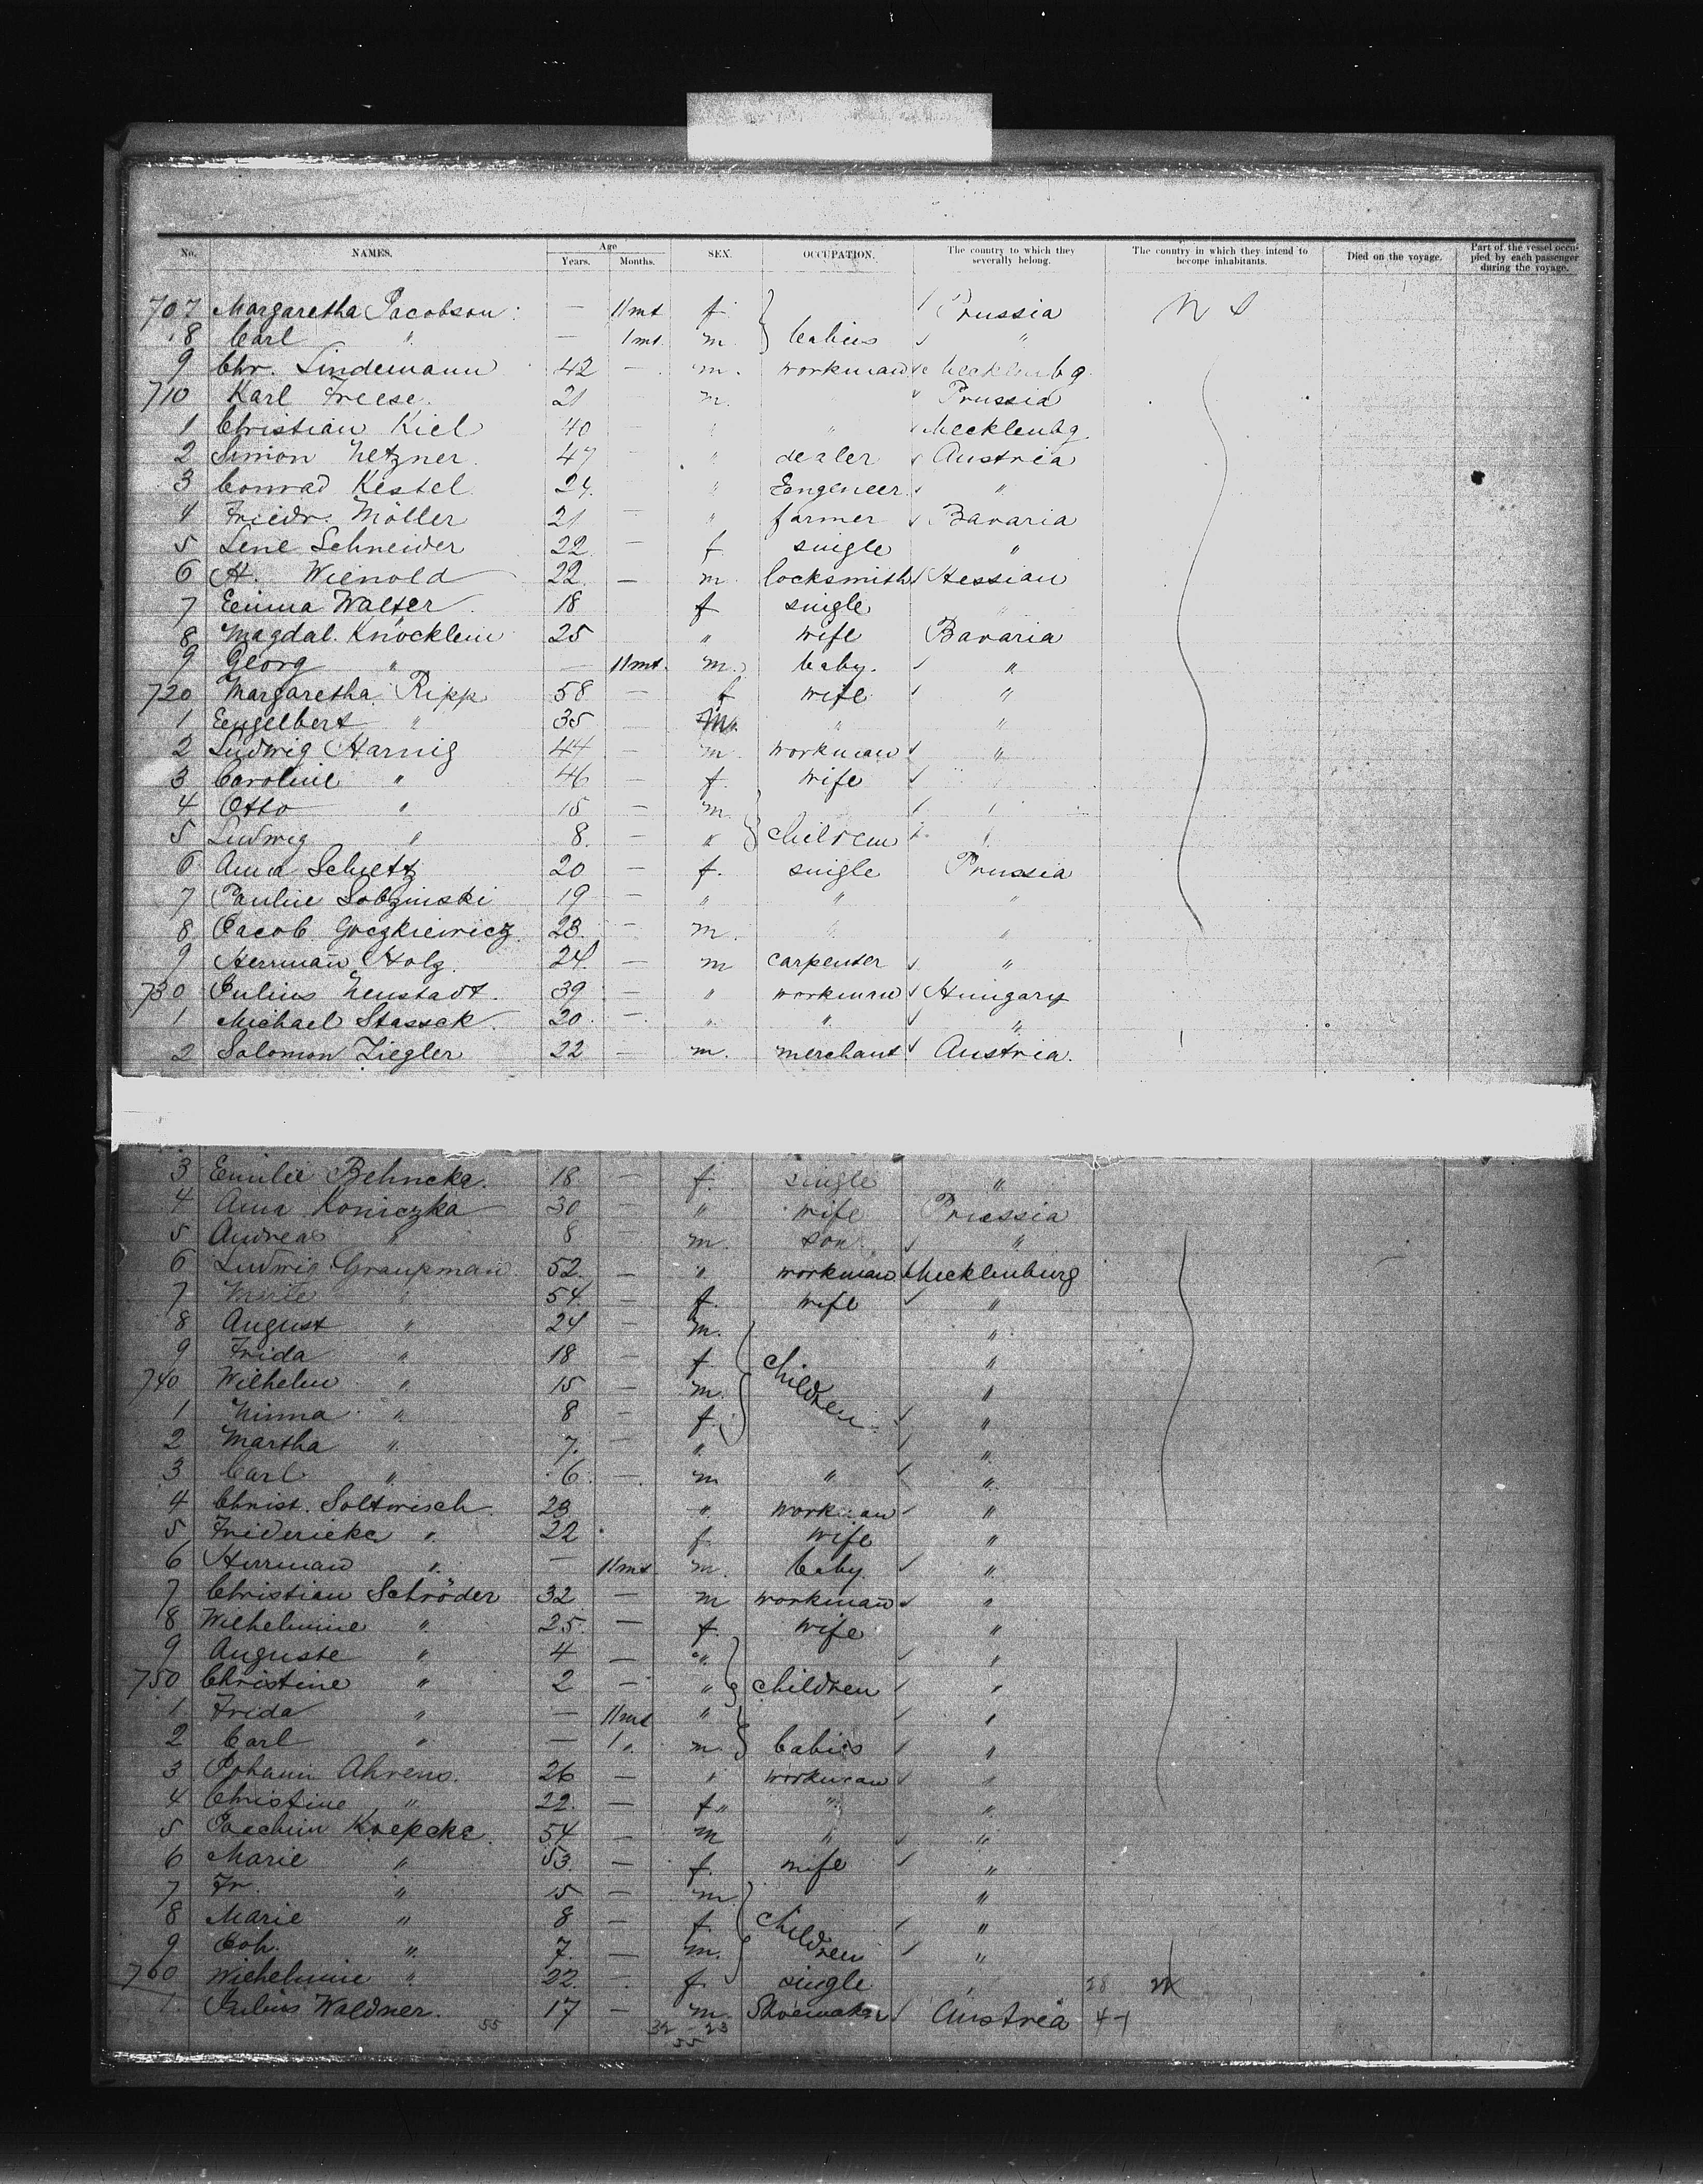 No. NAMES. Age Years. Months. SEX. OCCUPATION. The country to which they severally belong. The country in which they intend to become inhabitants. Died on the voyage. Part of the vessel occupied by each passenger during the voyage.
707 Margaretha Jacobson — 11 mt f. } Prussia
8 Carl " — 1 mt. m. } babies "
9 Chr. Lindemann 42 — m. workman Mecklenbg
710 Karl Freese 21 — m. Prussia
1 Christian Kiel 40 — " " Mecklenbg.
2 Simon Netzner 47 " dealer Austria
3 Conrad Kestel 24 " Eengeneer "
4 Friedr. Möller 21 — " farmer Bavaria
5 Lene Schneider 22 — f single "
6 H. Wienold 22 — m. locksmith Hessian
7 Emma Walter 18 f single "
8 Magdal. Knöcklein 25 " wife Bavaria
9 Georg " — 11 mt. m. baby. "
720 Margaretha Ripp 58 — f wife "
1 Eengelbert " 35 — m. " "
2 Ludwig Harnig 44 — m. workman "
3 Caroline " 46 — f. wife
4 Otto " 15 — m. } "
5 Ludwig " 8. — " } children "
6 Anna Schietz 20 — f. single Prussia
7 Pauline Sobzinski 19 — " " "
8 Jacob Goczkiewicz 23. — m. " "
9 Herrmann Holz 24 — m carpenter "
730 Julius Neustadt. 39 — " workman Hungary
1 Michael Stassek. 20. — " " "
2 Solomon Ziegler 22 — m. merchant Austria.
3 Emilie Behncke. 18 — f. single "
4 Anna Koniczka 30 — " wife Prussia
5 Andreas " 8 — m. son "
6 Ludwig Graupman 52. — " workman Mecklenburg
7 " 54 — f. wife "
8 August " 24 — m. } "
9 Frida " 18 — f } children "
740 Wilhelm " 15 — m. } "
1 Minna " 8 — f. } "
2 Martha " 7. — " "
3 Carl " 6. — m " "
4 Christ. Soltwisch. 23 " workman "
5 Friedericke " 22 f. wife "
6 Herrman " — 11 mt m. baby. "
7 Christian Schröder 32 — m workman "
8 Wilhelmine " 25. — f. wife "
9 Auguste " 4 — " } "
750 Christine " 2 — " } children "
1 Frida " — 11 mt " } "
2 Carl " — 1 " m } babies "
3 Johann Ahrens. 26 — " workman "
4 Christine " 22. — f. " "
5 Joachim Koepcke 54 — m " "
6 Marie " 53 — f. wife "
7 Fr. " 15 — m } "
8 Marie " 8 — f. } children "
9 Joh. " 7. — m. } "
760 Wilhelmine " 22. — f. single
1 Julius Waldner. 17 — m. Shoemaker Austria
55 32 23
55